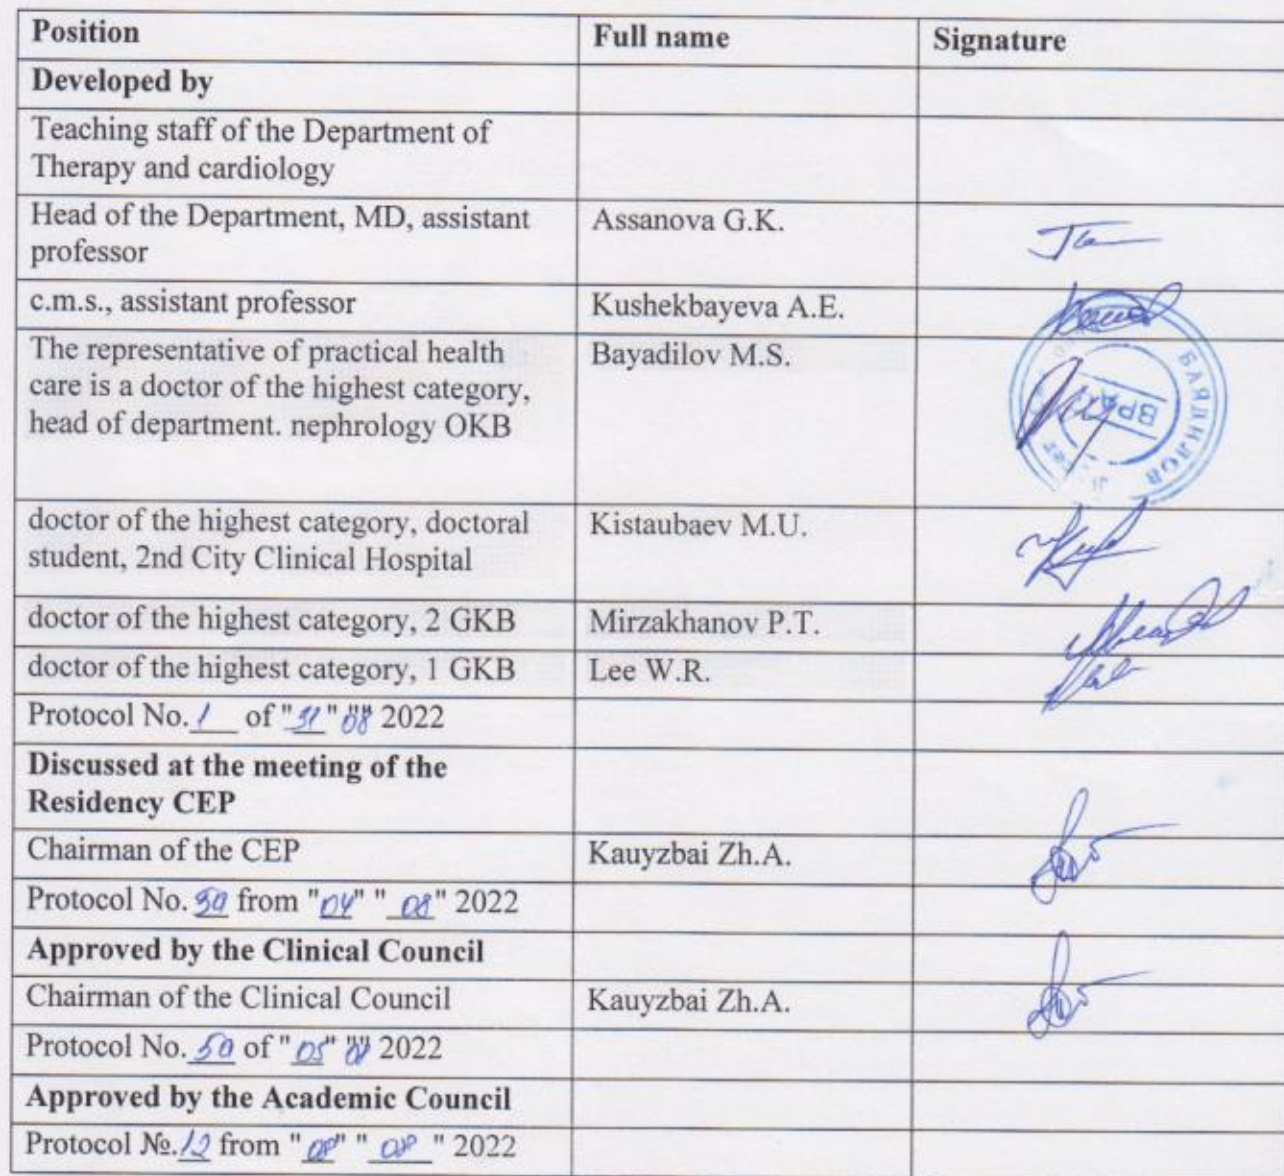 Position Full name Signature
Developed by
Teaching staff of the Department of
Therapy and cardiology
Head of the Department, MD, assistant Assanova G.K.
professor
c.m.s., assistant professor Kushekbayeva A.E.
The representative of practical health Bayadilov M.S.
care is a doctor of the highest category,
head of department. nephrology OKB
БАЯДИЛОВ
ВРАЧ
doctor of the highest category, doctoral Kistaubaev M.U.
student, 2nd City Clinical Hospital
doctor of the highest category, 2 GKB Mirzakhanov P.T.
doctor of the highest category, 1 GKB Lee W.R.
Protocol No. 1 of "31" "08" 2022
Discussed at the meeting of the
Residency CEP
Chairman of the CEP Kauyzbai Zh.A.
Protocol No. from "04" "08" 2022
Approved by the Clinical Council
Chairman of the Clinical Council Kauyzbai Zh.A.
Protocol No. of "05" 2022
Approved by the Academic Council
Protocol №. 12 from " " " " 2022